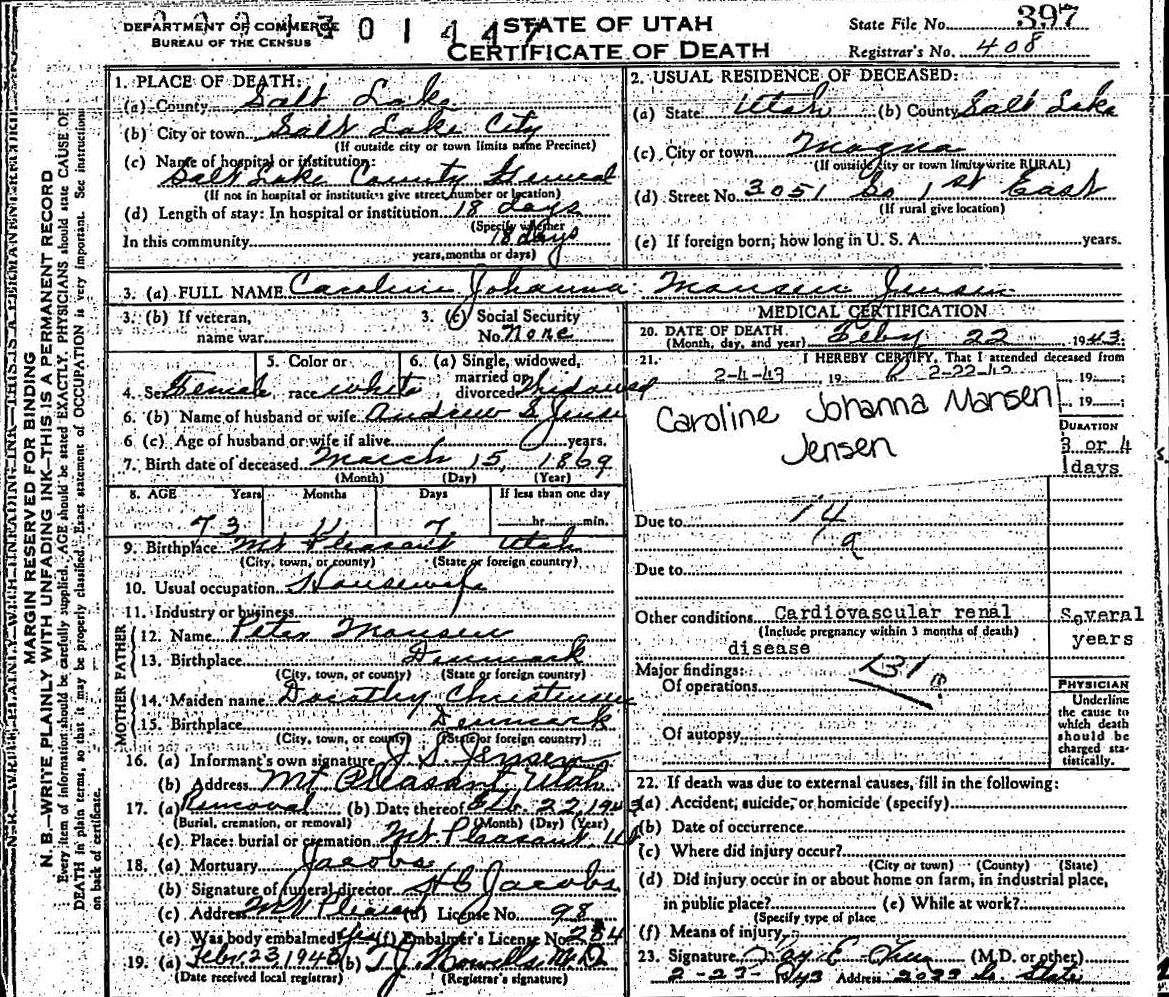 DEPARTMENT OF COMMERCE
BUREAU OF THE CENSUS
STATE OF UTAH
CERTIFICATE OF DEATH
State File No. 397
Registrar's No. 408
MARGIN RESERVED FOR BINDING
N. B.—WRITE PLAINLY WITH UNFADING INK—THIS IS A PERMANENT RECORD
Every item of information should be carefully supplied. AGE should be stated EXACTLY. PHYSICIANS should state CAUSE OF
DEATH in plain terms, so that it may be properly classified. Exact statement of OCCUPATION is very important. See instructions
on back of certificate.
1. PLACE OF DEATH:
(a) County Salt Lake
(b) City or town Salt Lake City
(If outside city or town limits name Precinct)
(c) Name of hospital or institution:
Salt Lake County General
(If not in hospital or institution give street number or location)
(d) Length of stay: In hospital or institution 18 days
(Specify whether
In this community 18 days
years, months or days)
2. USUAL RESIDENCE OF DECEASED:
(a) State Utah (b) County Salt Lake
(c) City or town Magna
(If outside city or town limits write RURAL)
(d) Street No. 3051 So 1st East
(If rural give location)
(e) If foreign born, how long in U. S. A. years.
3. (a) FULL NAME Caroline Johanna Mansen Jensen
3. (b) If veteran,
name war
3. (c) Social Security
No. None
4. Sex Female
5. Color or
race white
6. (a) Single, widowed,
married or
divorced Widowed
6. (b) Name of husband or wife Andrew S Jense
6 (c) Age of husband or wife if alive years.
7. Birth date of deceased March 15, 1869
(Month) (Day) (Year)
8. AGE Years Months Days If less than one day
73 7 hr. min.
9. Birthplace Mt Pleasant Utah
(City, town, or county) (State or foreign country)
10. Usual occupation Housewife
11. Industry or business
FATHER
12. Name Peter Mansen
13. Birthplace Denmark
(City, town, or county) (State or foreign country)
MOTHER
14. Maiden name Dorothy Christensen
15. Birthplace Denmark
(City, town, or county) (State or foreign country)
16. (a) Informant's own signature J. S. Jensen
(b) Address Mt Pleasant, Utah
17. (a) Removal (b) Date thereof Feb. 22, 1943
(Burial, cremation, or removal) (Month) (Day) (Year)
(c) Place: burial or cremation Mt Pleasant Ut
18. (a) Mortuary Jacobs
(b) Signature of funeral director H C Jacobs
(c) Address Mt Pleasant (d) License No. 98
(e) Was body embalmed yes (f) Embalmer's License No. 284
19. (a) Febr. 23, 1943 (b) T. J. Howells M D
(Date received local registrar) (Registrar's signature)
MEDICAL CERTIFICATION
20. DATE OF DEATH Feby 22 1943;
(Month, day, and year)
21. I HEREBY CERTIFY, That I attended deceased from
2-4-43 , 19 2-22-43 , 19 ;
, 19 ;
Caroline Johanna Mansen
Jensen
DURATION
3 or 4
days
Due to 74
a
Due to
Other conditions Cardiovascular renal
(Include pregnancy within 3 months of death)
disease
Several
years
Major findings:
Of operations 131
Of autopsy
PHYSICIAN
Underline
the cause to
which death
should be
charged sta-
tistically.
22. If death was due to external causes, fill in the following:
(a) Accident, suicide, or homicide (specify)
(b) Date of occurrence
(c) Where did injury occur?
(City or town) (County) (State)
(d) Did injury occur in or about home on farm, in industrial place,
in public place? (e) While at work?
(Specify type of place
(f) Means of injury
23. Signature (M.D. or other)
2-23-43 Address 2033 So. State